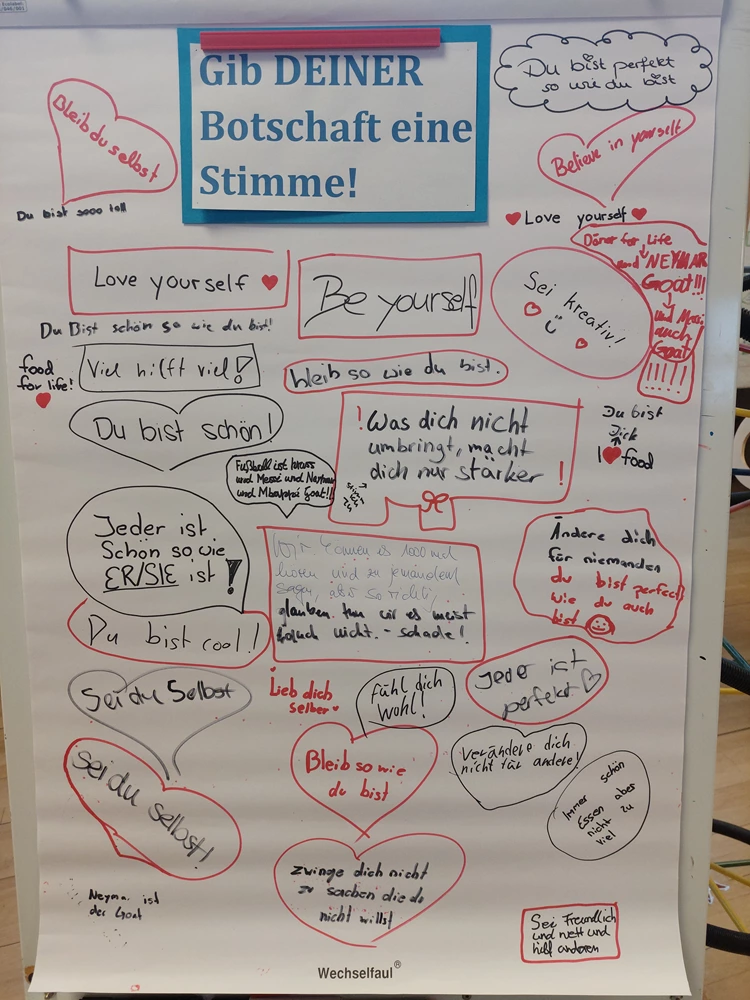 Gib DEINER
Botschaft eine
Stimme!
Du bist perfekt
so wie du bist
Bleib du selbst
Believe in yourself
Du bist sooo toll
Love yourself
Döner for Life
und NEYMAR
Goat!!!
und Messi
auch
Goat
Love yourself
Be yourself
Sei kreativ!
Du Bist schön so wie du bist!
food
for life!
Viel hilft viel!
bleib so wie du bist.
Du bist schön!
!Was dich nicht
umbringt, macht
dich nur stärker!
Du bist
Dick
I food
Fußball ist krass
und Messi und Neymar
und Mbappé Goat!!
Jeder ist
Schön so wie
ER/SIE ist!
Wir können es 1000 mal
hören und zu jemandem
sagen, aber so richtig
glauben tun wir es meist
nicht. - schade!
Ändere dich
für niemanden
du bist perfect
wie du auch
bist
Du bist cool!
Sei du Selbst
Lieb dich
selber
fühl dich
wohl!
Jeder ist
perfekt
sei du selbst!
Bleib so wie
du bist
Verändere dich
nicht für andere!
Immer schön
Essen aber
nicht zu
viel
zwinge dich nicht
zu sachen die du
nicht willst
Neymar ist
der Goat
Sei Freundlich
und nett und
hilf anderen
Wechselfaul®